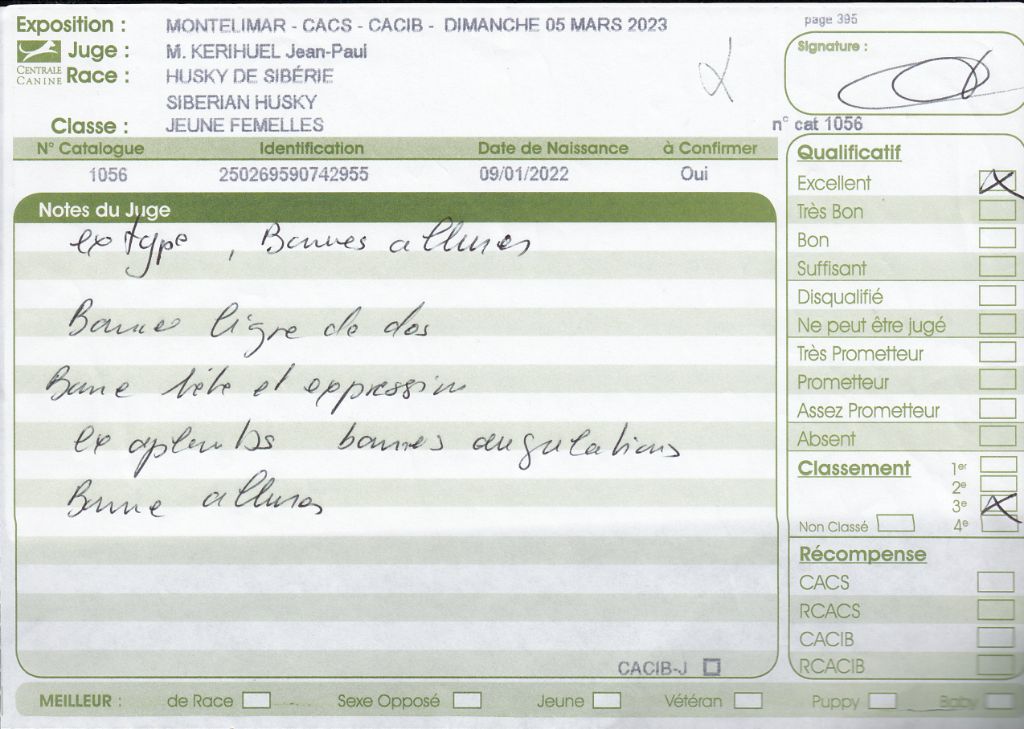 Exposition : MONTELIMAR - CACS - CACIB - DIMANCHE 05 MARS 2023
page 395
CENTRALE CANINE
Juge : M. KERIHUEL Jean-Paul
Signature :
Race : HUSKY DE SIBÉRIE
SIBERIAN HUSKY
Classe : JEUNE FEMELLES
n° cat 1056
N° Catalogue Identification Date de Naissance à Confirmer
1056 250269590742955 09/01/2022 Oui
Notes du Juge
ex type, Bonnes allures
Bonne ligne de dos
Bonne tête et expression
ex aplombs bonnes angulations
Bonne allures
CACIB-J
Qualificatif
Excellent
Très Bon
Bon
Suffisant
Disqualifié
Ne peut être jugé
Très Prometteur
Prometteur
Assez Prometteur
Absent
Classement 1er
2e
3e
Non Classé 4e
Récompense
CACS
RCACS
CACIB
RCACIB
MEILLEUR : de Race Sexe Opposé Jeune Vétéran Puppy Baby